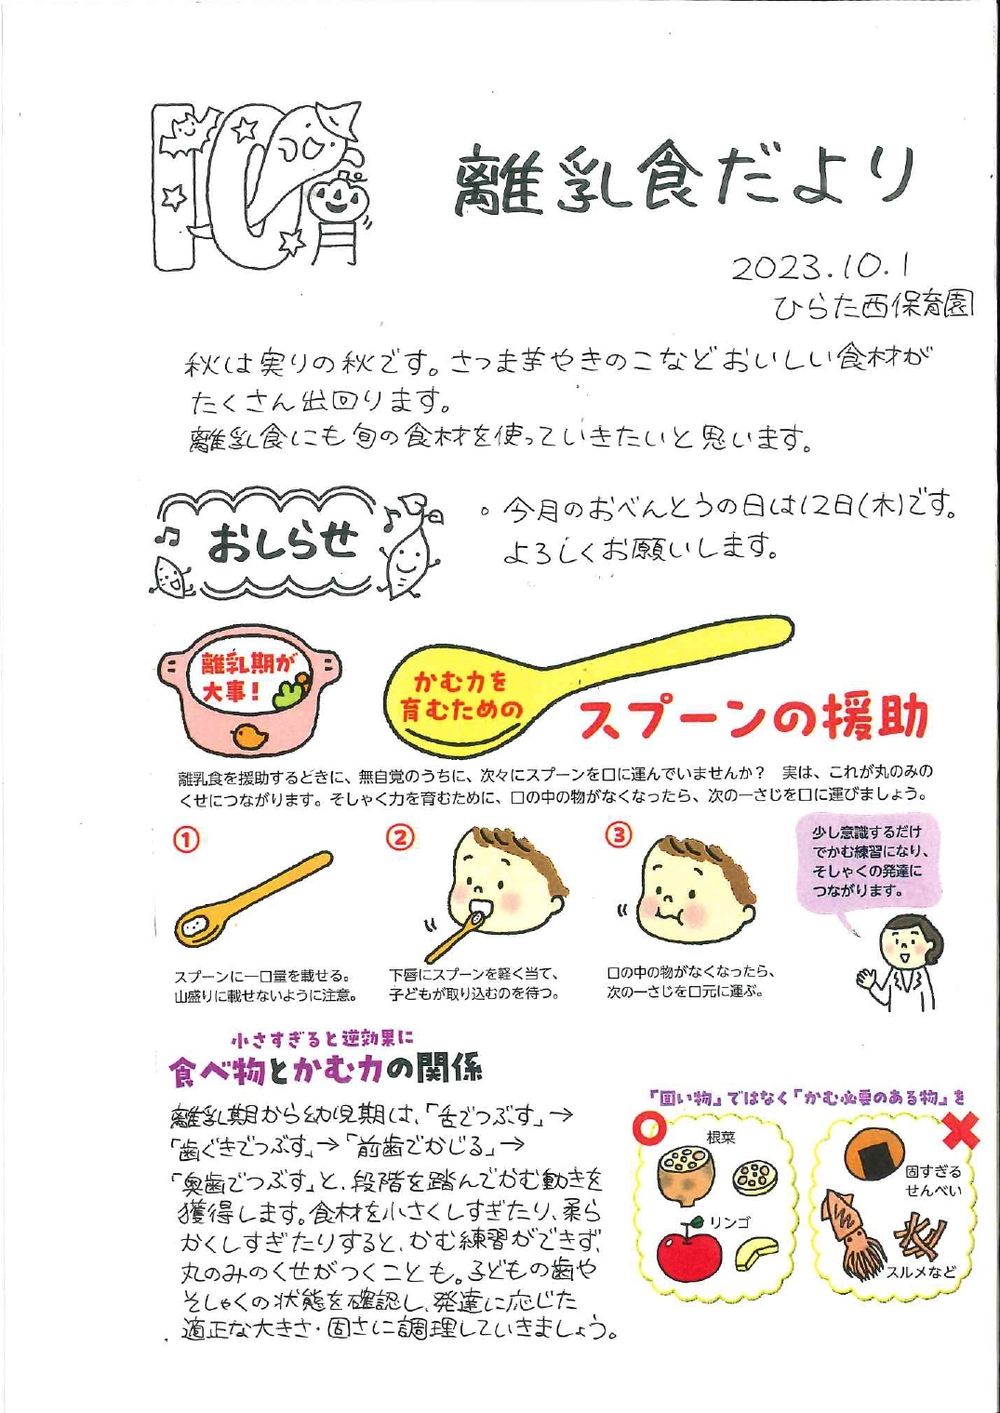 10月
離乳食だより
2023.10.1
ひらた西保育園
秋は実りの秋です。さつま芋やきのこなどおいしい食材が
たくさん出回ります。
離乳食にも旬の食材を使っていきたいと思います。
おしらせ
。今月のおべんとうの日は12日(木)です。
よろしくお願いします。
離乳期が
大事！
かむ力を
育むための
スプーンの援助
離乳食を援助するときに、無自覚のうちに、次々にスプーンを口に運んでいませんか？　実は、これが丸のみの
くせにつながります。そしゃく力を育むために、口の中の物がなくなったら、次の一さじを口に運びましょう。
①
スプーンに一口量を載せる。
山盛りに載せないように注意。
②
下唇にスプーンを軽く当て、
子どもが取り込むのを待つ。
③
口の中の物がなくなったら、
次の一さじを口元に運ぶ。
少し意識するだけ
でかむ練習になり、
そしゃくの発達に
つながります。
小さすぎると逆効果に
食べ物とかむ力の関係
離乳期から幼児期は、「舌でつぶす」→
「歯ぐきでつぶす」→「前歯でかじる」→
「奥歯でつぶす」と、段階を踏んでかむ動きを
獲得します。食材を小さくしすぎたり、柔ら
かくしすぎたりすると、かむ練習ができず、
丸のみのくせがつくことも。子どもの歯や
そしゃくの状態を確認し、発達に応じた
適正な大きさ・固さに調理していきましょう。
「固い物」ではなく「かむ必要のある物」を
根菜
リンゴ
固すぎる
せんべい
スルメなど